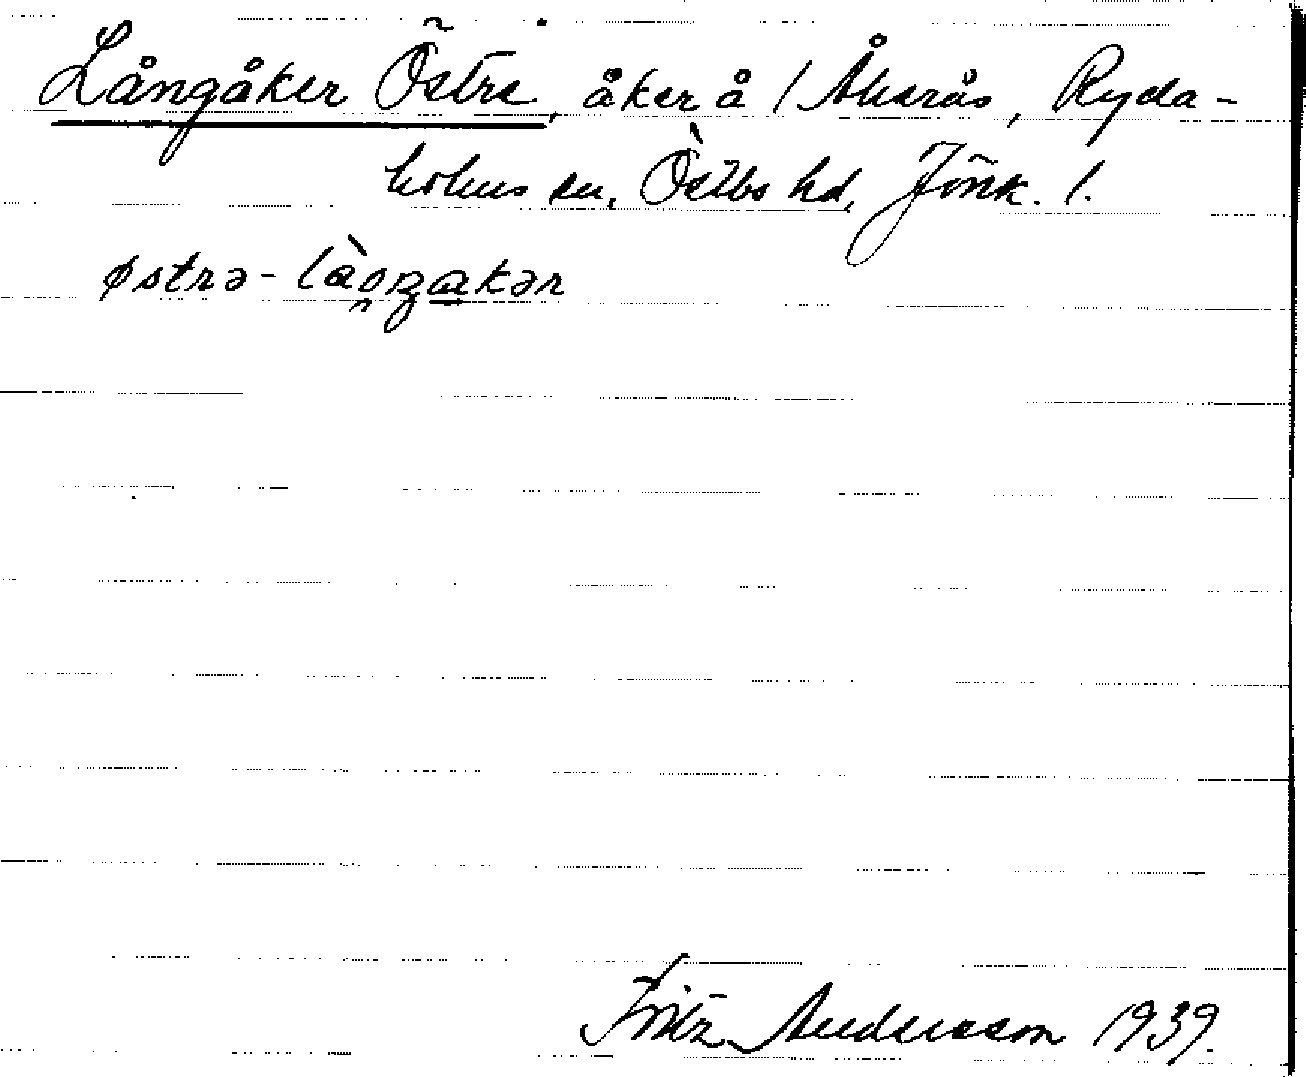 Långåker Östre, åker å / Åkerås, Ryda-
holms sn, Östbo hd, Jönk. l.
østrə-
Fritz Andersson 1939.